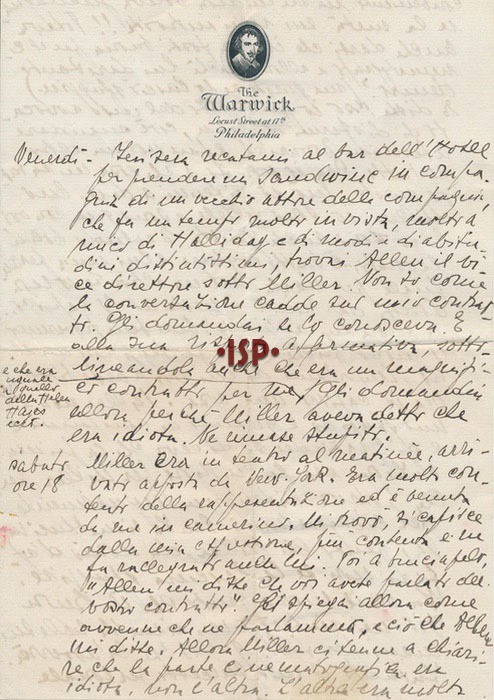 The
Warwick
Locust Street at 17th
Philadelphia
Venerdì - Ieri sera recatami al bar dell'Hotel
per prendere un sandwinc in compa-
gnia di un vecchio attore della compagnia,
che fu un tempo molto in vista, molto a
mico di Halliday e di modi e di abitu
dini distintissimi, trovai Allen il vi
ce direttore sotto Miller. Non so come
la conversazione cadde sul mio contrat
to. Gli domandai se lo conosceva. E
alla sua affermativa sotto-
lineandola anche che era un magnifi-
co contratto per me, gli domandai
e che era
uguale
a quello
dell'Helen
Hayes
ecc.
allora perché Miller aveva detto che
era idiota. Ne rimase stupito.
sabato
ore 18
Miller era in teatro al matinée, arri-
vato apposta da New-York. Era molto con-
tento della rappresentazione ed è venuto
da me in camerino. Mi trovò, si capisce
dalla mia espressione, più contenta e se
ne rallegrò anche lui. Poi a bruciapelo,
"Allen mi disse che voi avete parlato del
vostro contratto". Gli spiegai allora come
avvenne che ne parlammo, e ciò che Allen
mi disse. Allora Miller ci tenne a chiari-
re che la parte cinematografica era
idiota, non l'altra. L'altra era molto
ISP